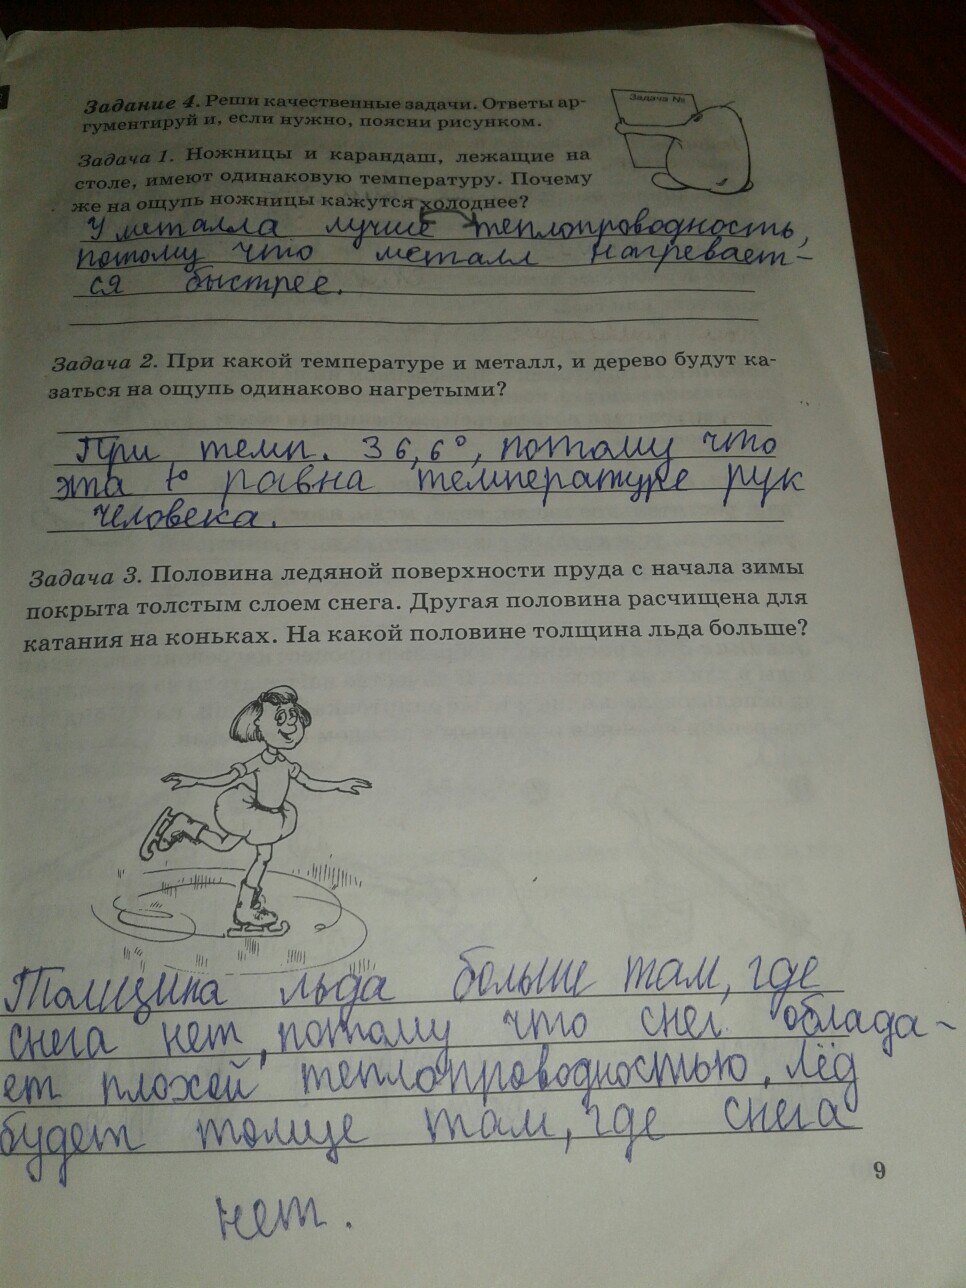 Задание 4. Реши качественные задачи. Ответы ар-
гументируй и, если нужно, поясни рисунком.
Задача №
Задача 1. Ножницы и карандаш, лежащие на
столе, имеют одинаковую температуру. Почему
же на ощупь ножницы кажутся холоднее?
У металла лучше теплопроводность,
потому что металл нагревает-
ся быстрее.
Задача 2. При какой температуре и металл, и дерево будут ка-
заться на ощупь одинаково нагретыми?
При темп. 36,6°, потому что
эта t° равна температуре рук
человека.
Задача 3. Половина ледяной поверхности пруда с начала зимы
покрыта толстым слоем снега. Другая половина расчищена для
катания на коньках. На какой половине толщина льда больше?
Толщина льда больше там, где
снега нет, потому что снег облада-
ет плохой теплопроводностью, лёд
будет толще там, где снега
9
нет.